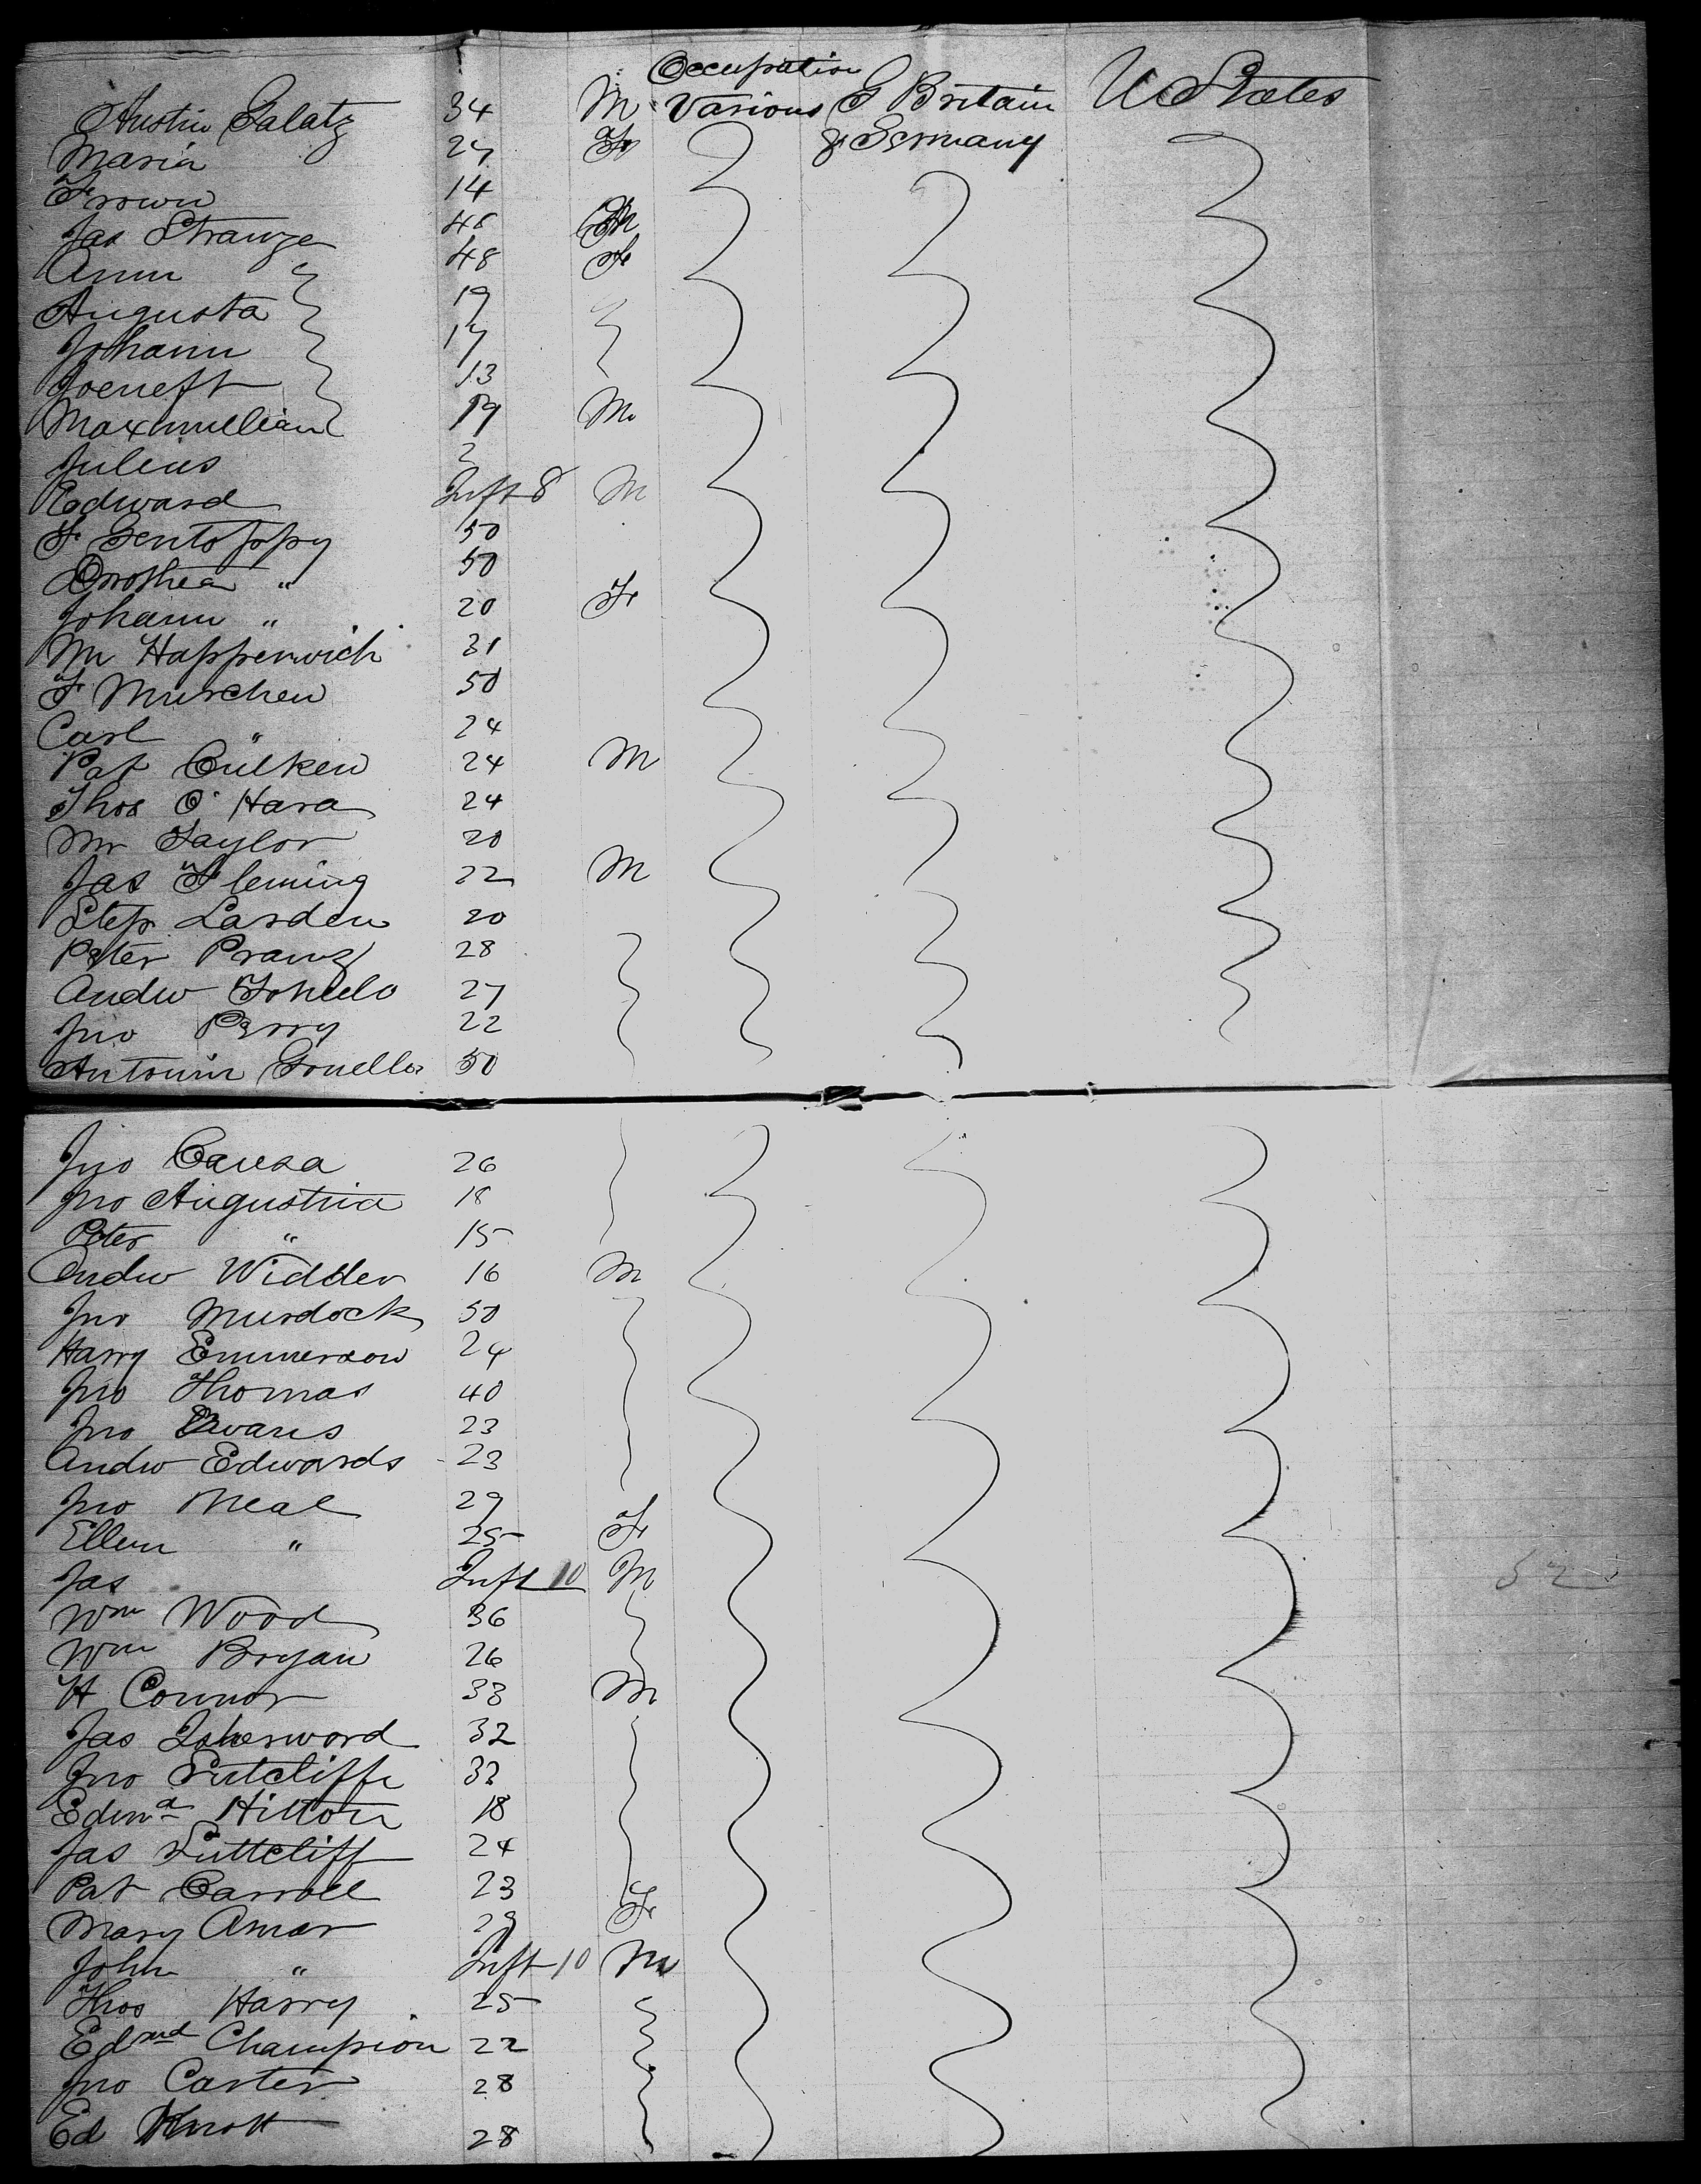 Occupation
Austin Galatz 34 M Various G Britain U States
Maria 27 F & Germany
14
Jas Strange 48 M
Ann 48 F
Augusta 19
Johann 17
13
Maxmillian 19 M
Julius 2
Edward Inft 8 M
F 50
Dorothea " 50
Johann " 20 F
M Happenwich 31
F Murchen 50
Carl " 24
Pat Culken 24 M
Thos O'Hara 24
Wm Taylor 20
Jas Fleming 22 M
Step Larden 20
Peter Franz 28
Andw 27
Jno Perry 22
50
Jno Causa 26
Jno Augustria 18
Peter " 15
Andw Widder 16 M
Jno Murdock 50
Harry Emmerson 24
Jno Thomas 40
Jno Evans 23
Andw Edwards 23
Jno Neal 29
Ellen " 25 F
Jas Inft 10 M
Wm Wood 36
Wm Bryan 26
H Connor 33 M
Jas Isherwood 32
Jno Sutcliffe 32
Edwd Hilton 18
Jas Suttcliff 24
Pat Carroll 23
Mary Amar 29 F
John " Inft 10 M
Thos Harry 25
Edmd Champion 22
Jno Carter 28
Ed Knott 28